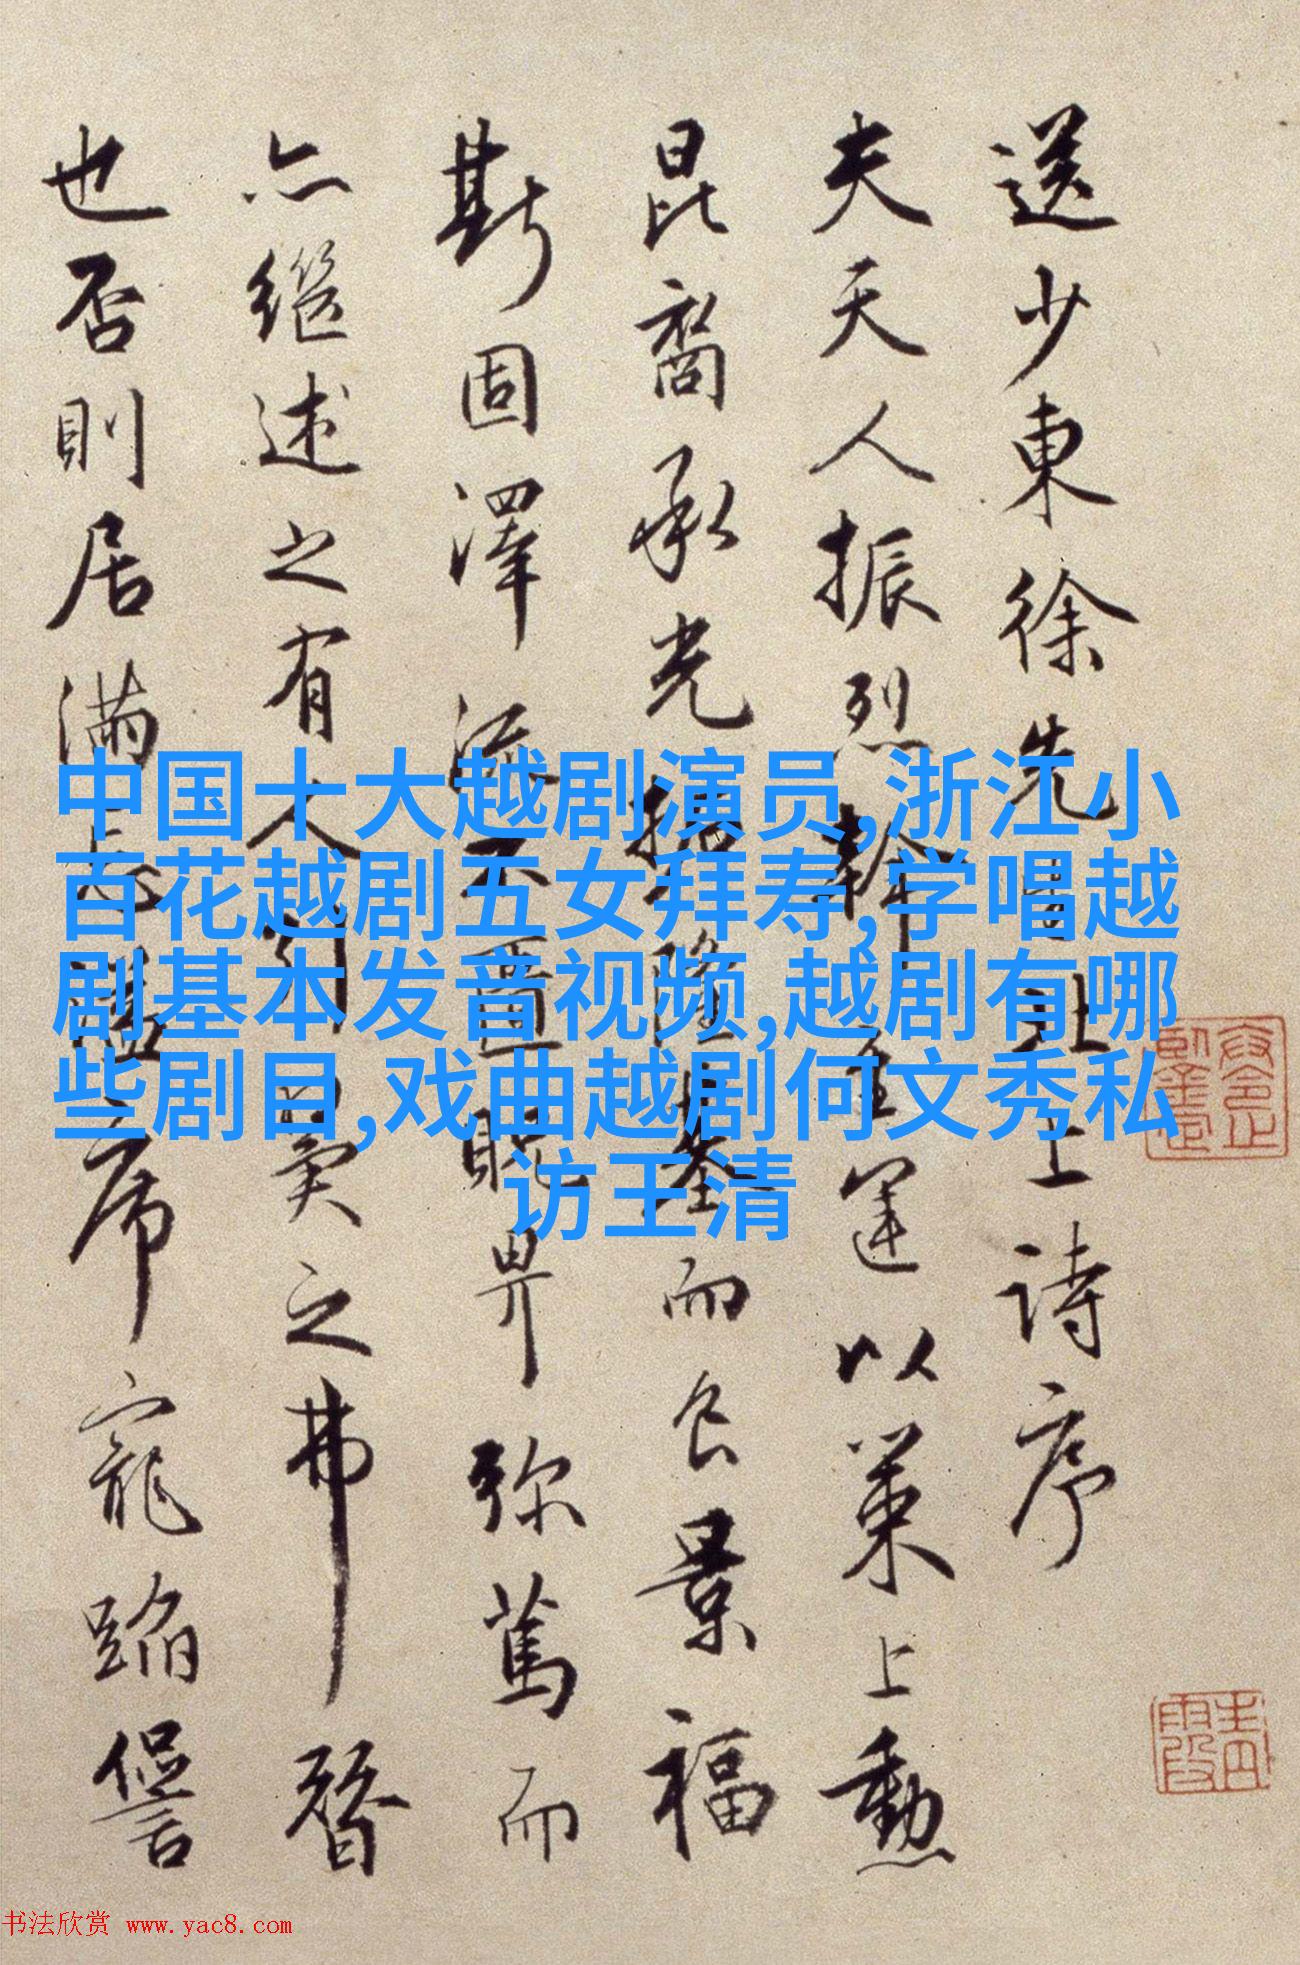 送少東徐先上詩序
夫天人振烈幹運以策上勳
昆裔承光振隆基而景福
斯固澤畀弥篤而
亦継述之有人之弗替
也否則居滿席寵蹈
中国十大越剧演员,浙江小
百花越剧五女拜寿,学唱越
剧基本发音视频,越剧有哪
些剧目,戏曲越剧何文秀私
访王清
书法欣赏 www.yac8.com